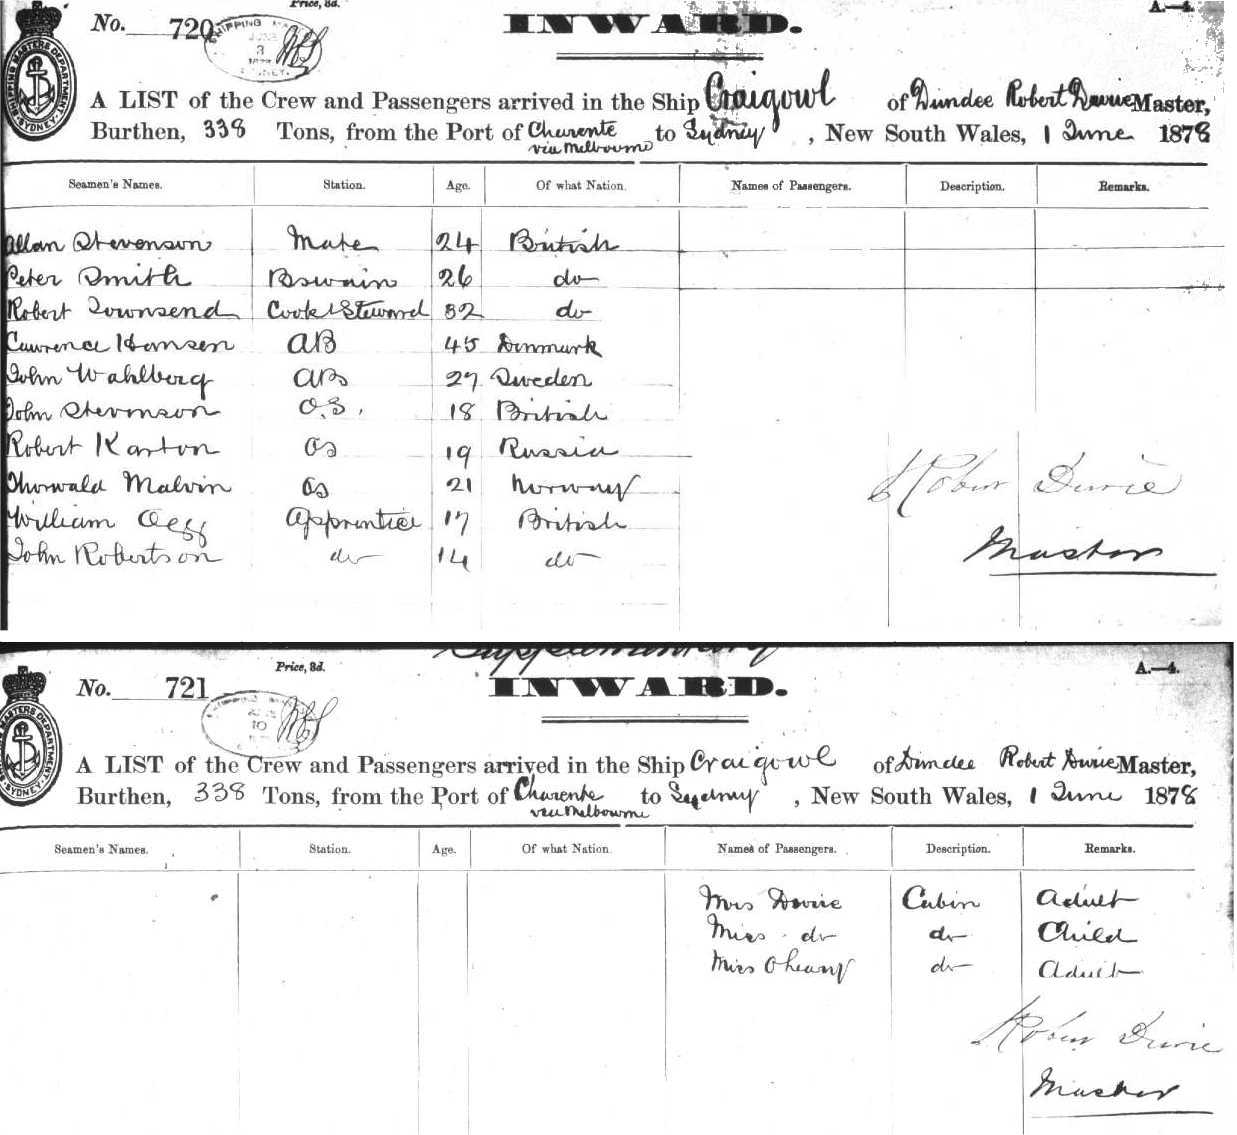 Price, 8d.
A.—4.
No. 720
INWARD.
SHIPPING MASTERS DEPARTMENT SYDNEY
SHIPPING
3
SYDNEY
A LIST of the Crew and Passengers arrived in the Ship Craigowl of Dundee Robert Davie Master,
Burthen, 338 Tons, from the Port of Charente to Sydney, New South Wales, 1 June 1878
via Melbourne
Seamen's Names. Station. Age. Of what Nation. Names of Passengers. Description. Remarks.
Allan Stevenson Mate 24 British
Peter Smith Bswain 26 do
Robert Townsend Cook & Steward 32 do
Lawrence Hansen AB 45 Denmark
John Wahlberg ABs 27 Sweden
John Stevenson O.S. 18 British
Robert Karton Os 19 Russia
Thorwald Malvin Os 21 Norway
William Ogg Apprentice 17 British
John Robertson do 14 do
Robert Davie
Master
Supplementary
Price, 8d.
A.—4.
No. 721
INWARD.
MASTERS DEPARTMENT SYDNEY
10
A LIST of the Crew and Passengers arrived in the Ship Craigowl of Dundee Robert Davie Master,
Burthen, 338 Tons, from the Port of Charente to Sydney, New South Wales, 1 June 1878
via Melbourne
Seamen's Names. Station. Age. Of what Nation. Names of Passengers. Description. Remarks.
Mrs Davie Cabin Adult
Miss do do Child
Miss do Adult
Robert Davie
Master